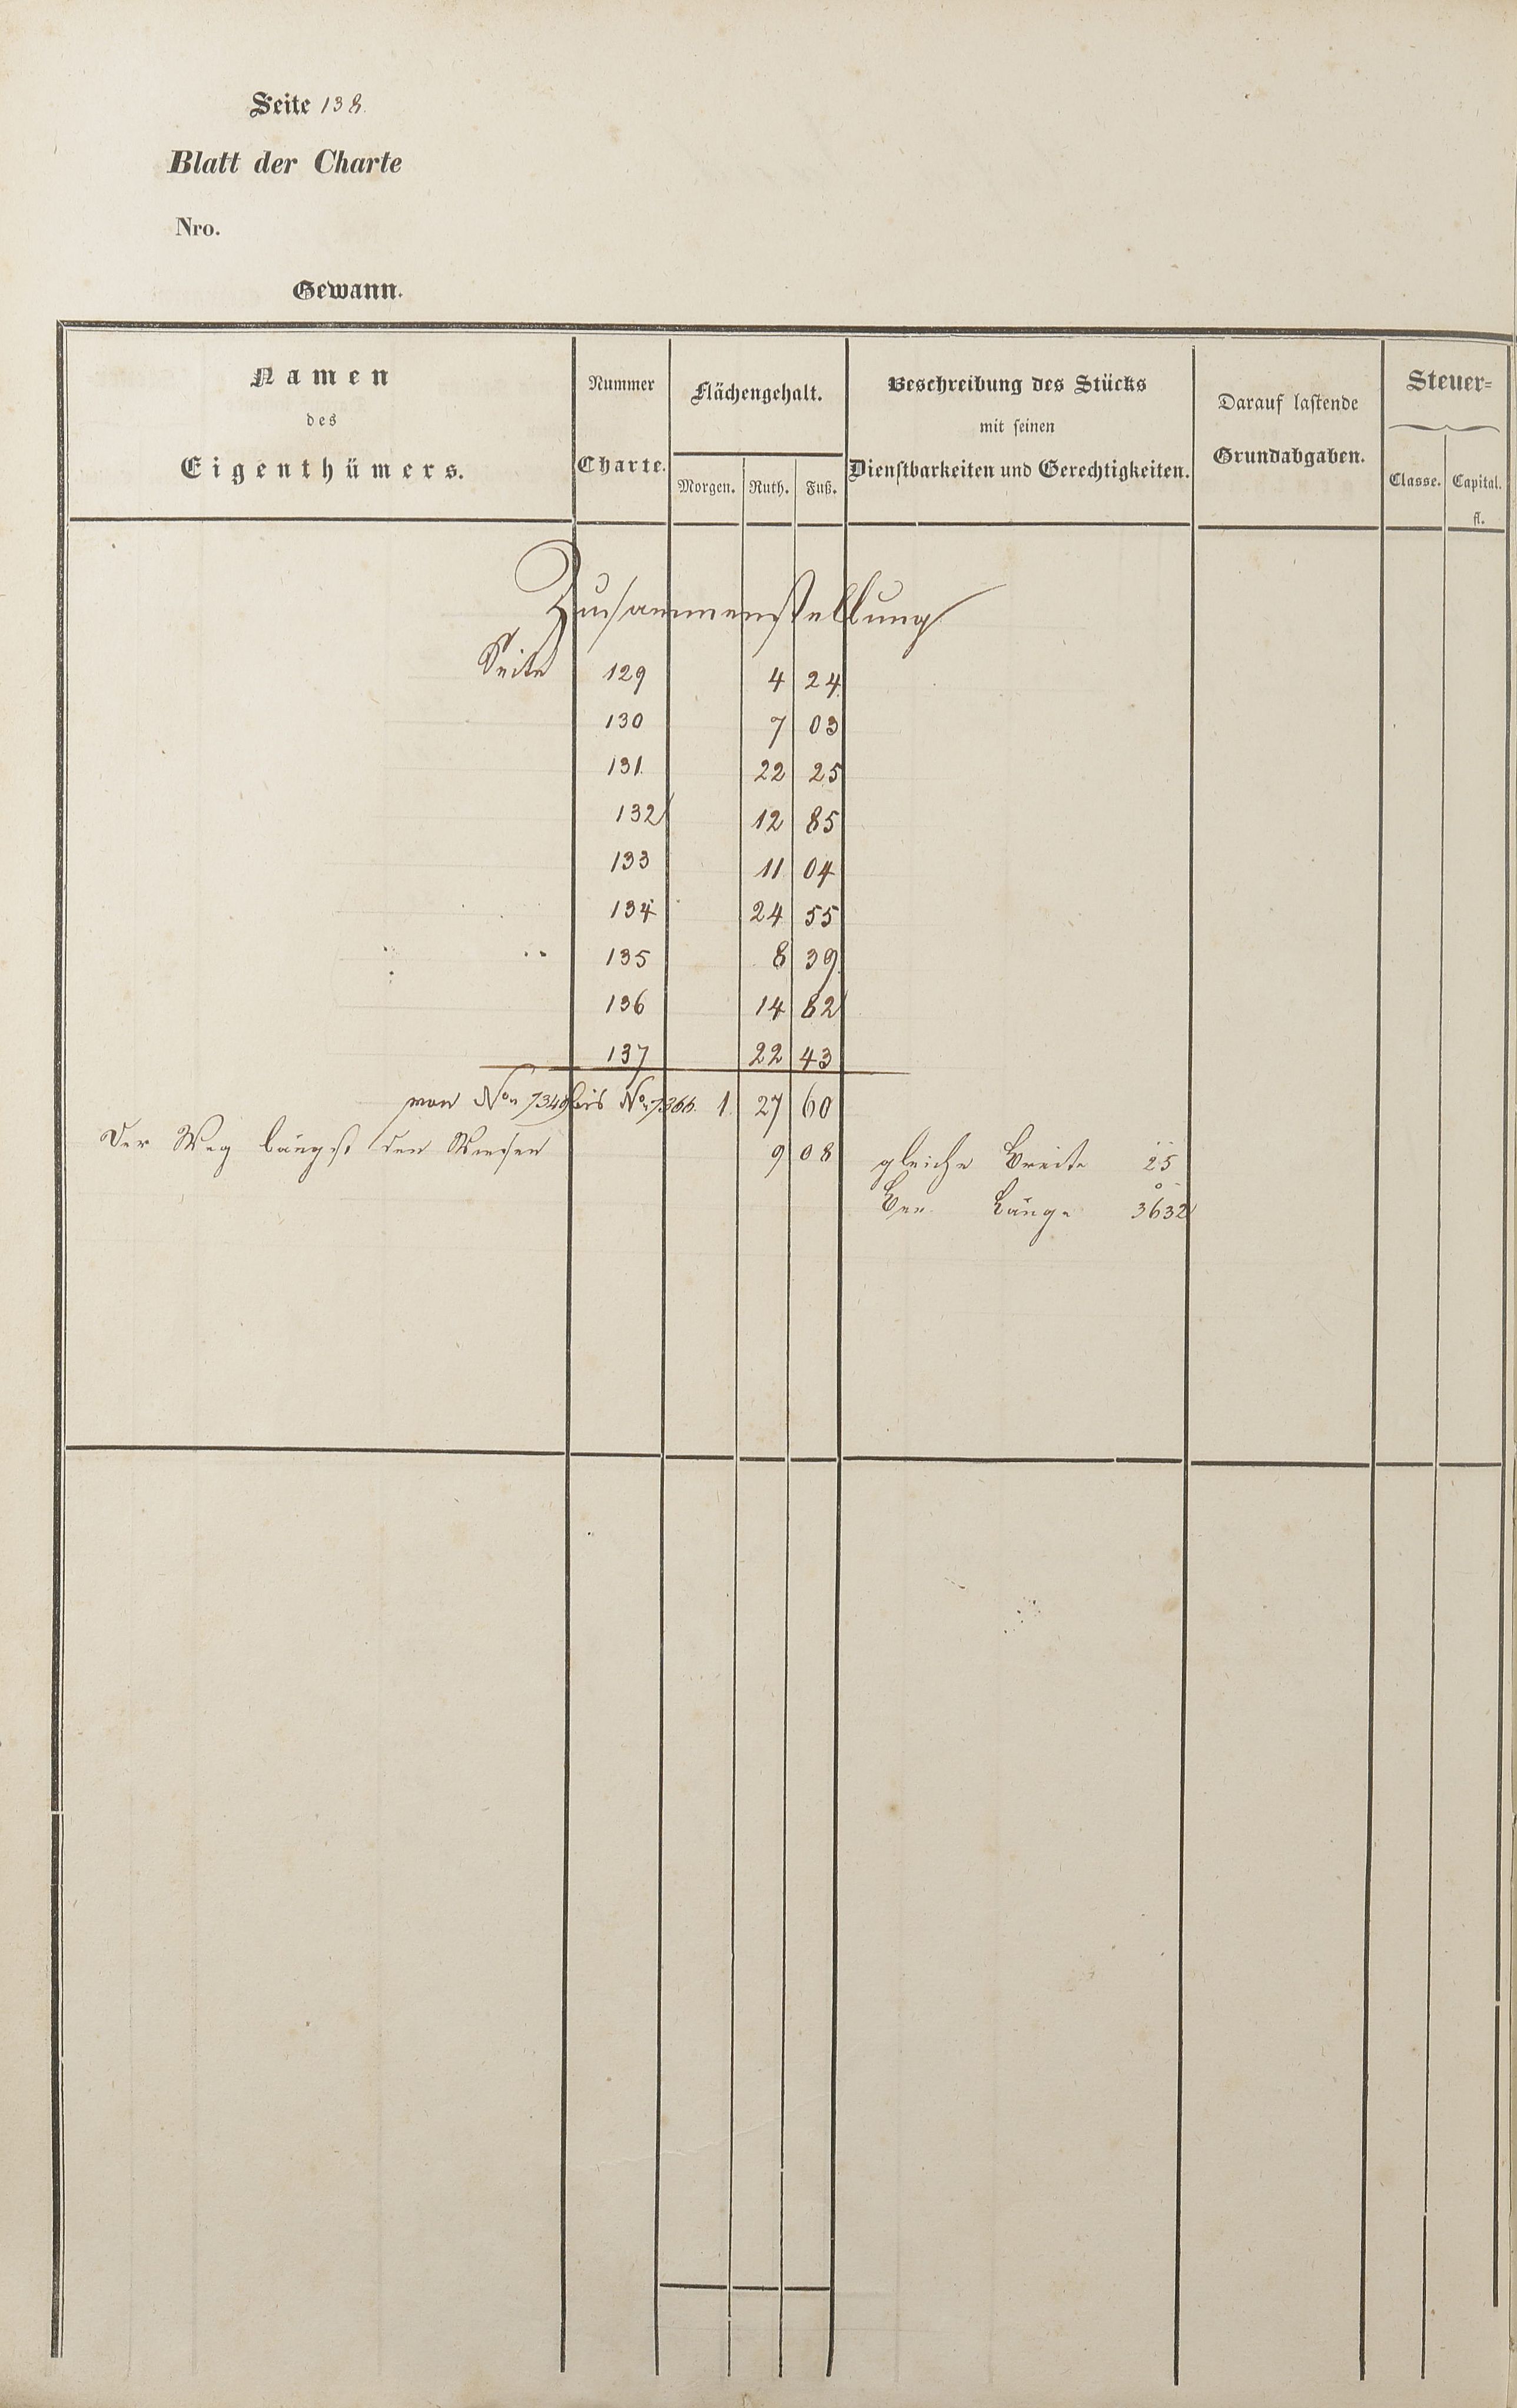 Seite 138.
Blatt der Charte
Nro.
Gewann.
Namen
des
Eigenthümers.
Nummer
Charte.
Flächengehalt.
Morgen. Ruth. Fuß.
Beschreibung des Stücks
mit seinen
Dienstbarkeiten und Gerechtigkeiten.
Darauf lastende
Grundabgaben.
Steuer=
Classe. Capital.
fl.
Zusammenstellung
Seite 129 4 24
130 7 03
131. 22 25
132 12 85
133 11 04
134 24 55
135 8 39
136 14 82
137 22 43
von No 7349 bis No 7366. 1 27 60
Der Weg längst den Wiesen 9 08 gleiche Breite 25
Länge 3632